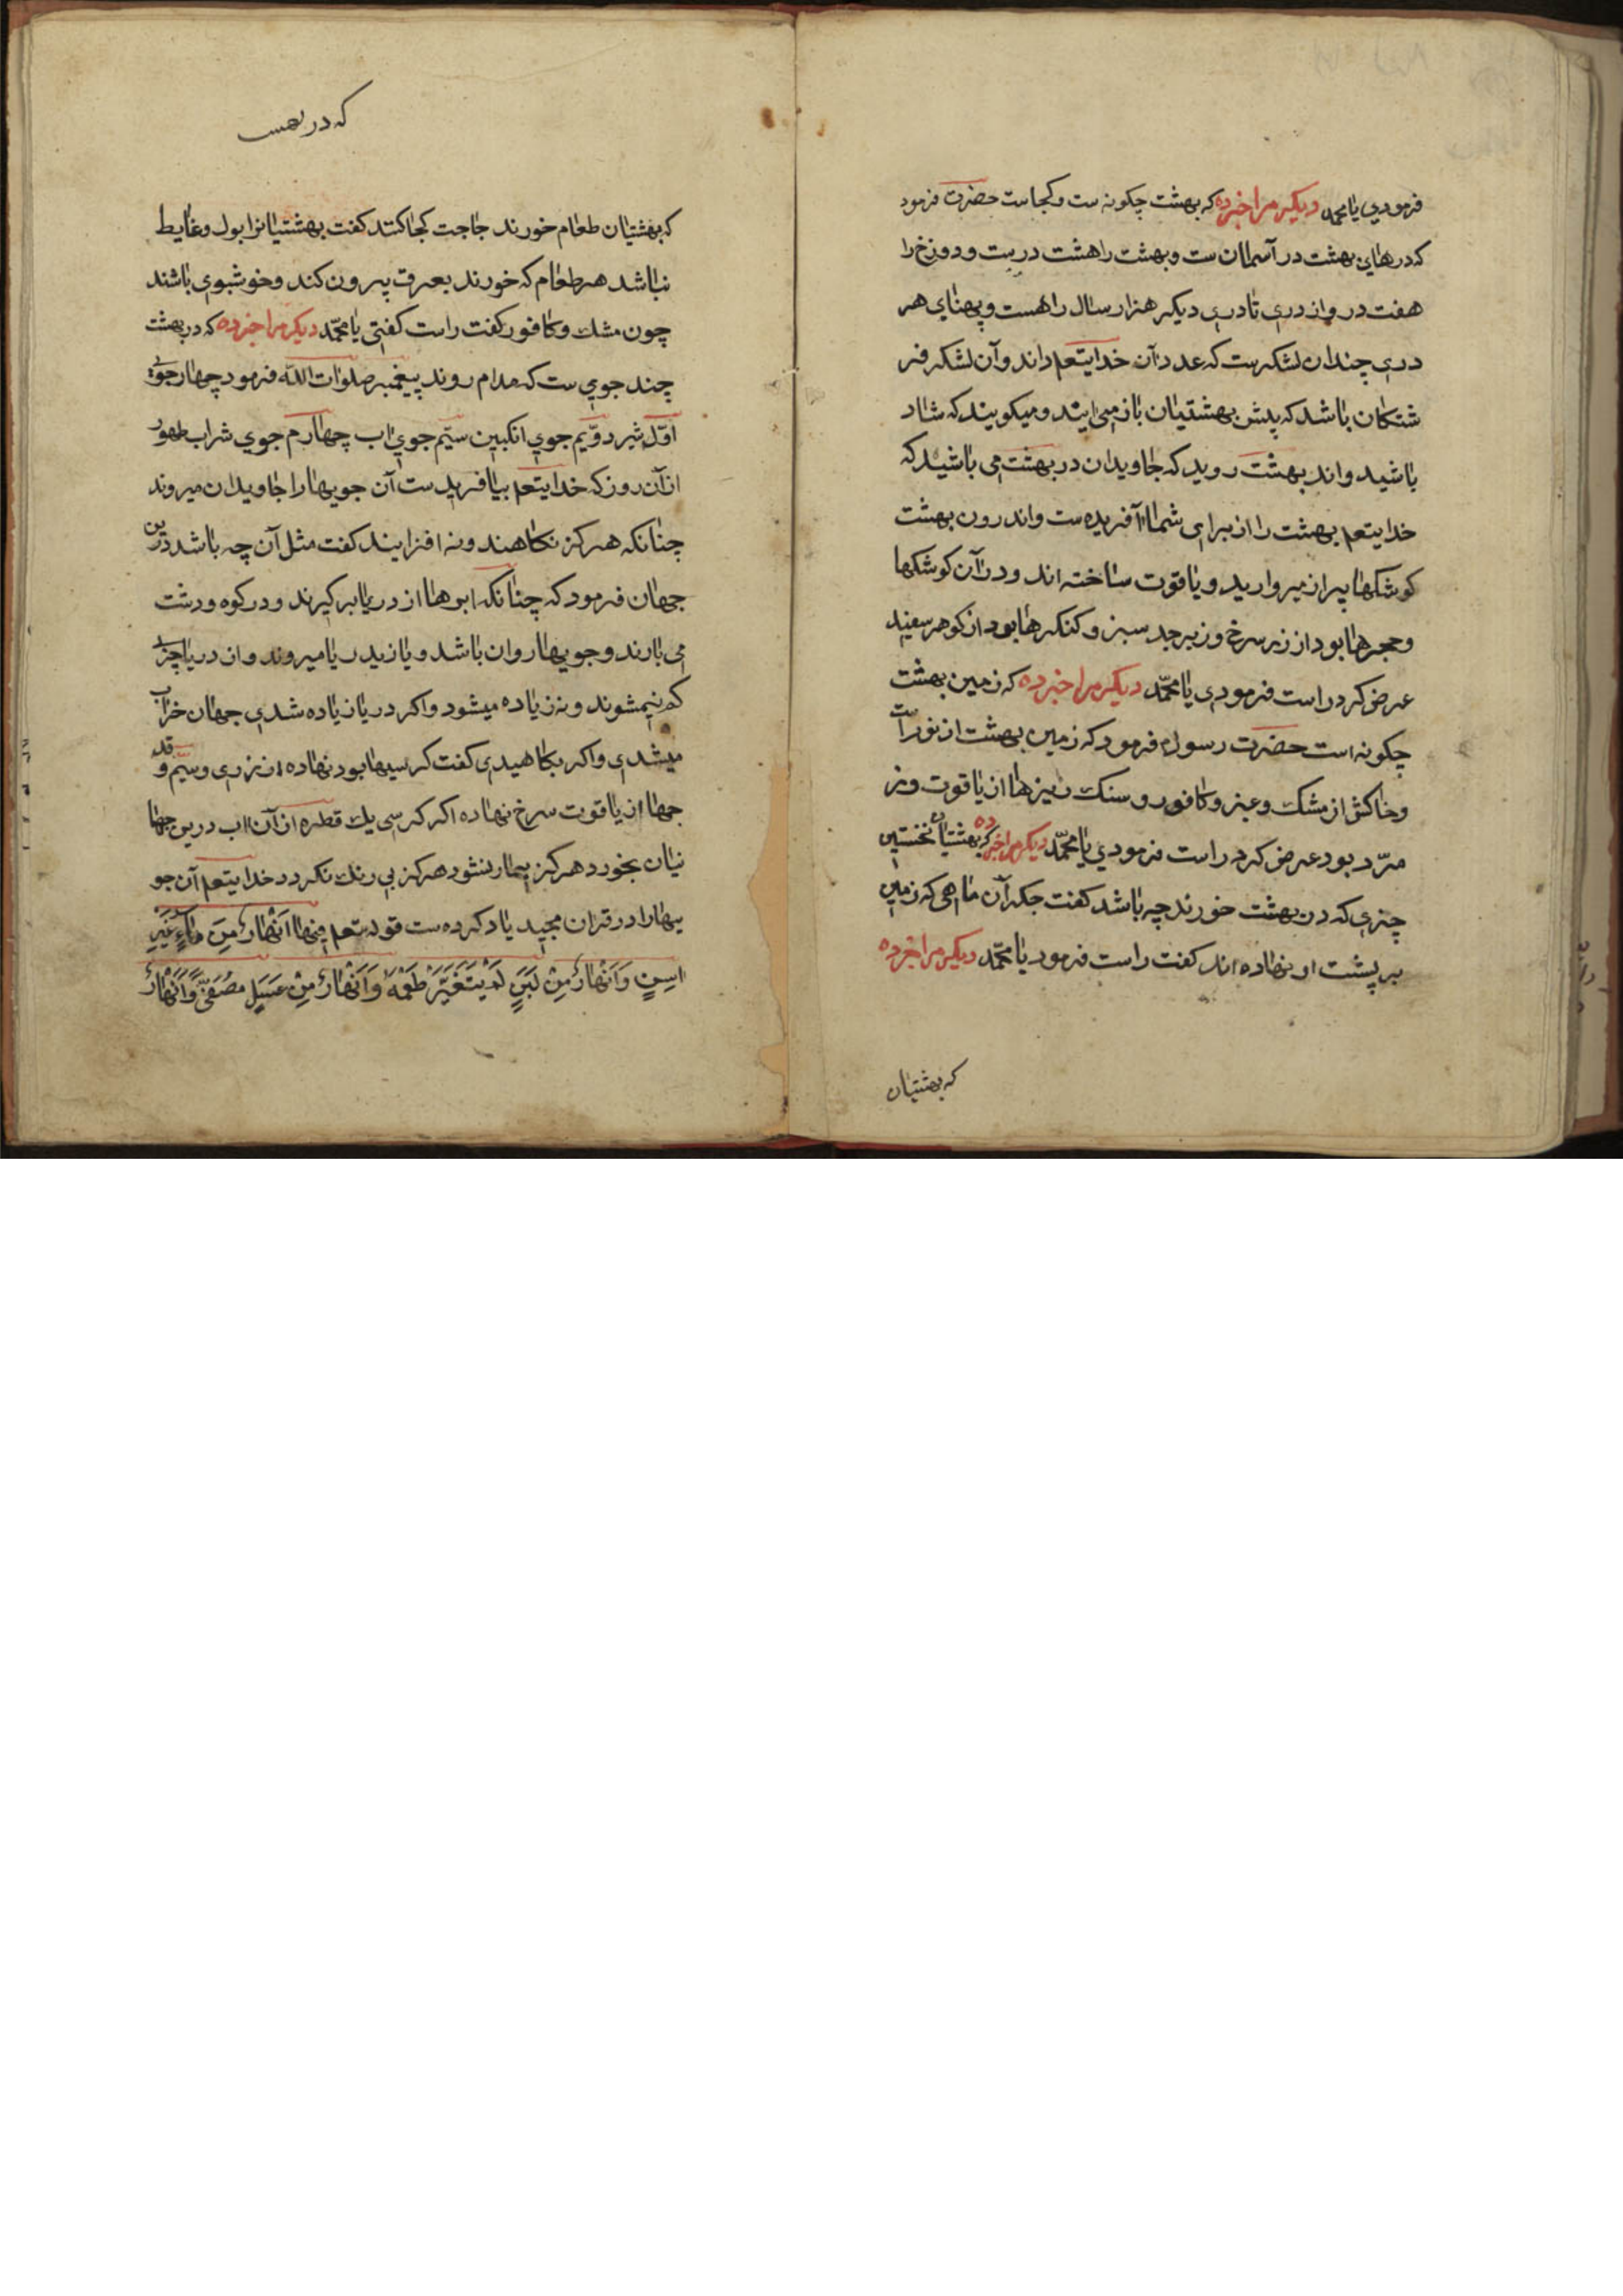 فرمودی یا محمد دیکر مرا خبر ده که بهشت چکونه ست و کجاست حضرت فرمود
که درهای بهشت در آسمان ست و بهشت را هشت در یست و دوزخ را
هفت در و از دری تا دری دیکر هزار سال راهست و پهنای هر
دری چندان لشکرست که عدد آن خدایتعم داند و آن لشکر فر
شتکان باشد که پیش بهشتیان باز می ایند و میکویند که شاد
باشید و اندر بهشت روید که جاویدان در بهشت می باشید که
خدایتعم بهشت را از برای شما آفریده ست و اندرون بهشت
کوشکها پر از میروارید و یاقوت ساخته اند و در آن کوشکها
و حجرها بود از زر سرخ و زبرجد سبز و کنکرها بود از کوهر سفید
عرض کرد راست فرمودی یا محمّد دیکر مرا خبر ده که زمین بهشت
چکونه است حضرت رسول فرمود که زمین بهشت از نور است
و خاکش از مشک و عنبر و کافور و سنک ریزها از یاقوت و ز
مرّد بود عرض کرد راست فرمودي یا محمّد دیکر مرا خبر ده که بهشتیان نخستین
چیزی که در بهشت خورند چه باشد کفت جکر آن ماهی که زمین
بر پشت او نهاده اند کفت راست فرمود یا محمّد دیکر مرا خبر ده
که بهشتیان
که در بهس
که بهشتیان طعام خورند حاجت کجا کنند کفت بهشتیانرا بول و غایط
نباشد هر طعام که خورند بعرق بیرون کند و خوشبوی باشند
چون مشك و کافور کفت راست کفتی یا محمّد دیکر مرا خبر ده که در بهشت
چند جوی ست که مدام روند پیغمبر صلوات الله فرمود چهار جوی
اوّل شیر دوّیم جوی انکبین سیّم جوی اب چهارم جوی شراب طهور
از آن روز که خدایتعم بیافریدست آن جویها را جاویدان میروند
چنانکه هرکز نکاهند و نه افزایند کفت مثل آن چه باشد درین
جهان فرمود که چنانکه ابرها از دریا بر کیرند و در کوه و دشت
می بارند و جویها روان باشد و باز بدریا میروند و از دریا چیزی
کم نیمشوند و نه زیاده میشود و اکر دریا زیاده شدی جهان خراب
میشدی و اکر بکاهیدی کفت کرسیها بود نهاده از زری و سیم و قد
جها از یاقوت سرخ نهاده اکر کرسی یك قطره از آن اب درین جها
نیان بخورد هرکز بیمار نشود هرکز بی رنك نکردد خدایتعم آن جو
یهارا در قران مجید یاد کرده ست قوله تعم فِیْهَا اَنْهَارٌ مِنَ مَاءٍ غَیْرِ
اسِنٍ وَاَنْهَارٌ مِنْ لَبَنٍ لَمْ یَتَغَیَّرْ طَعْمُهُ وَاَنْهَارٌ مِنْ عَسَلٍ مُصَفًّی وَاَنْهَارٌ